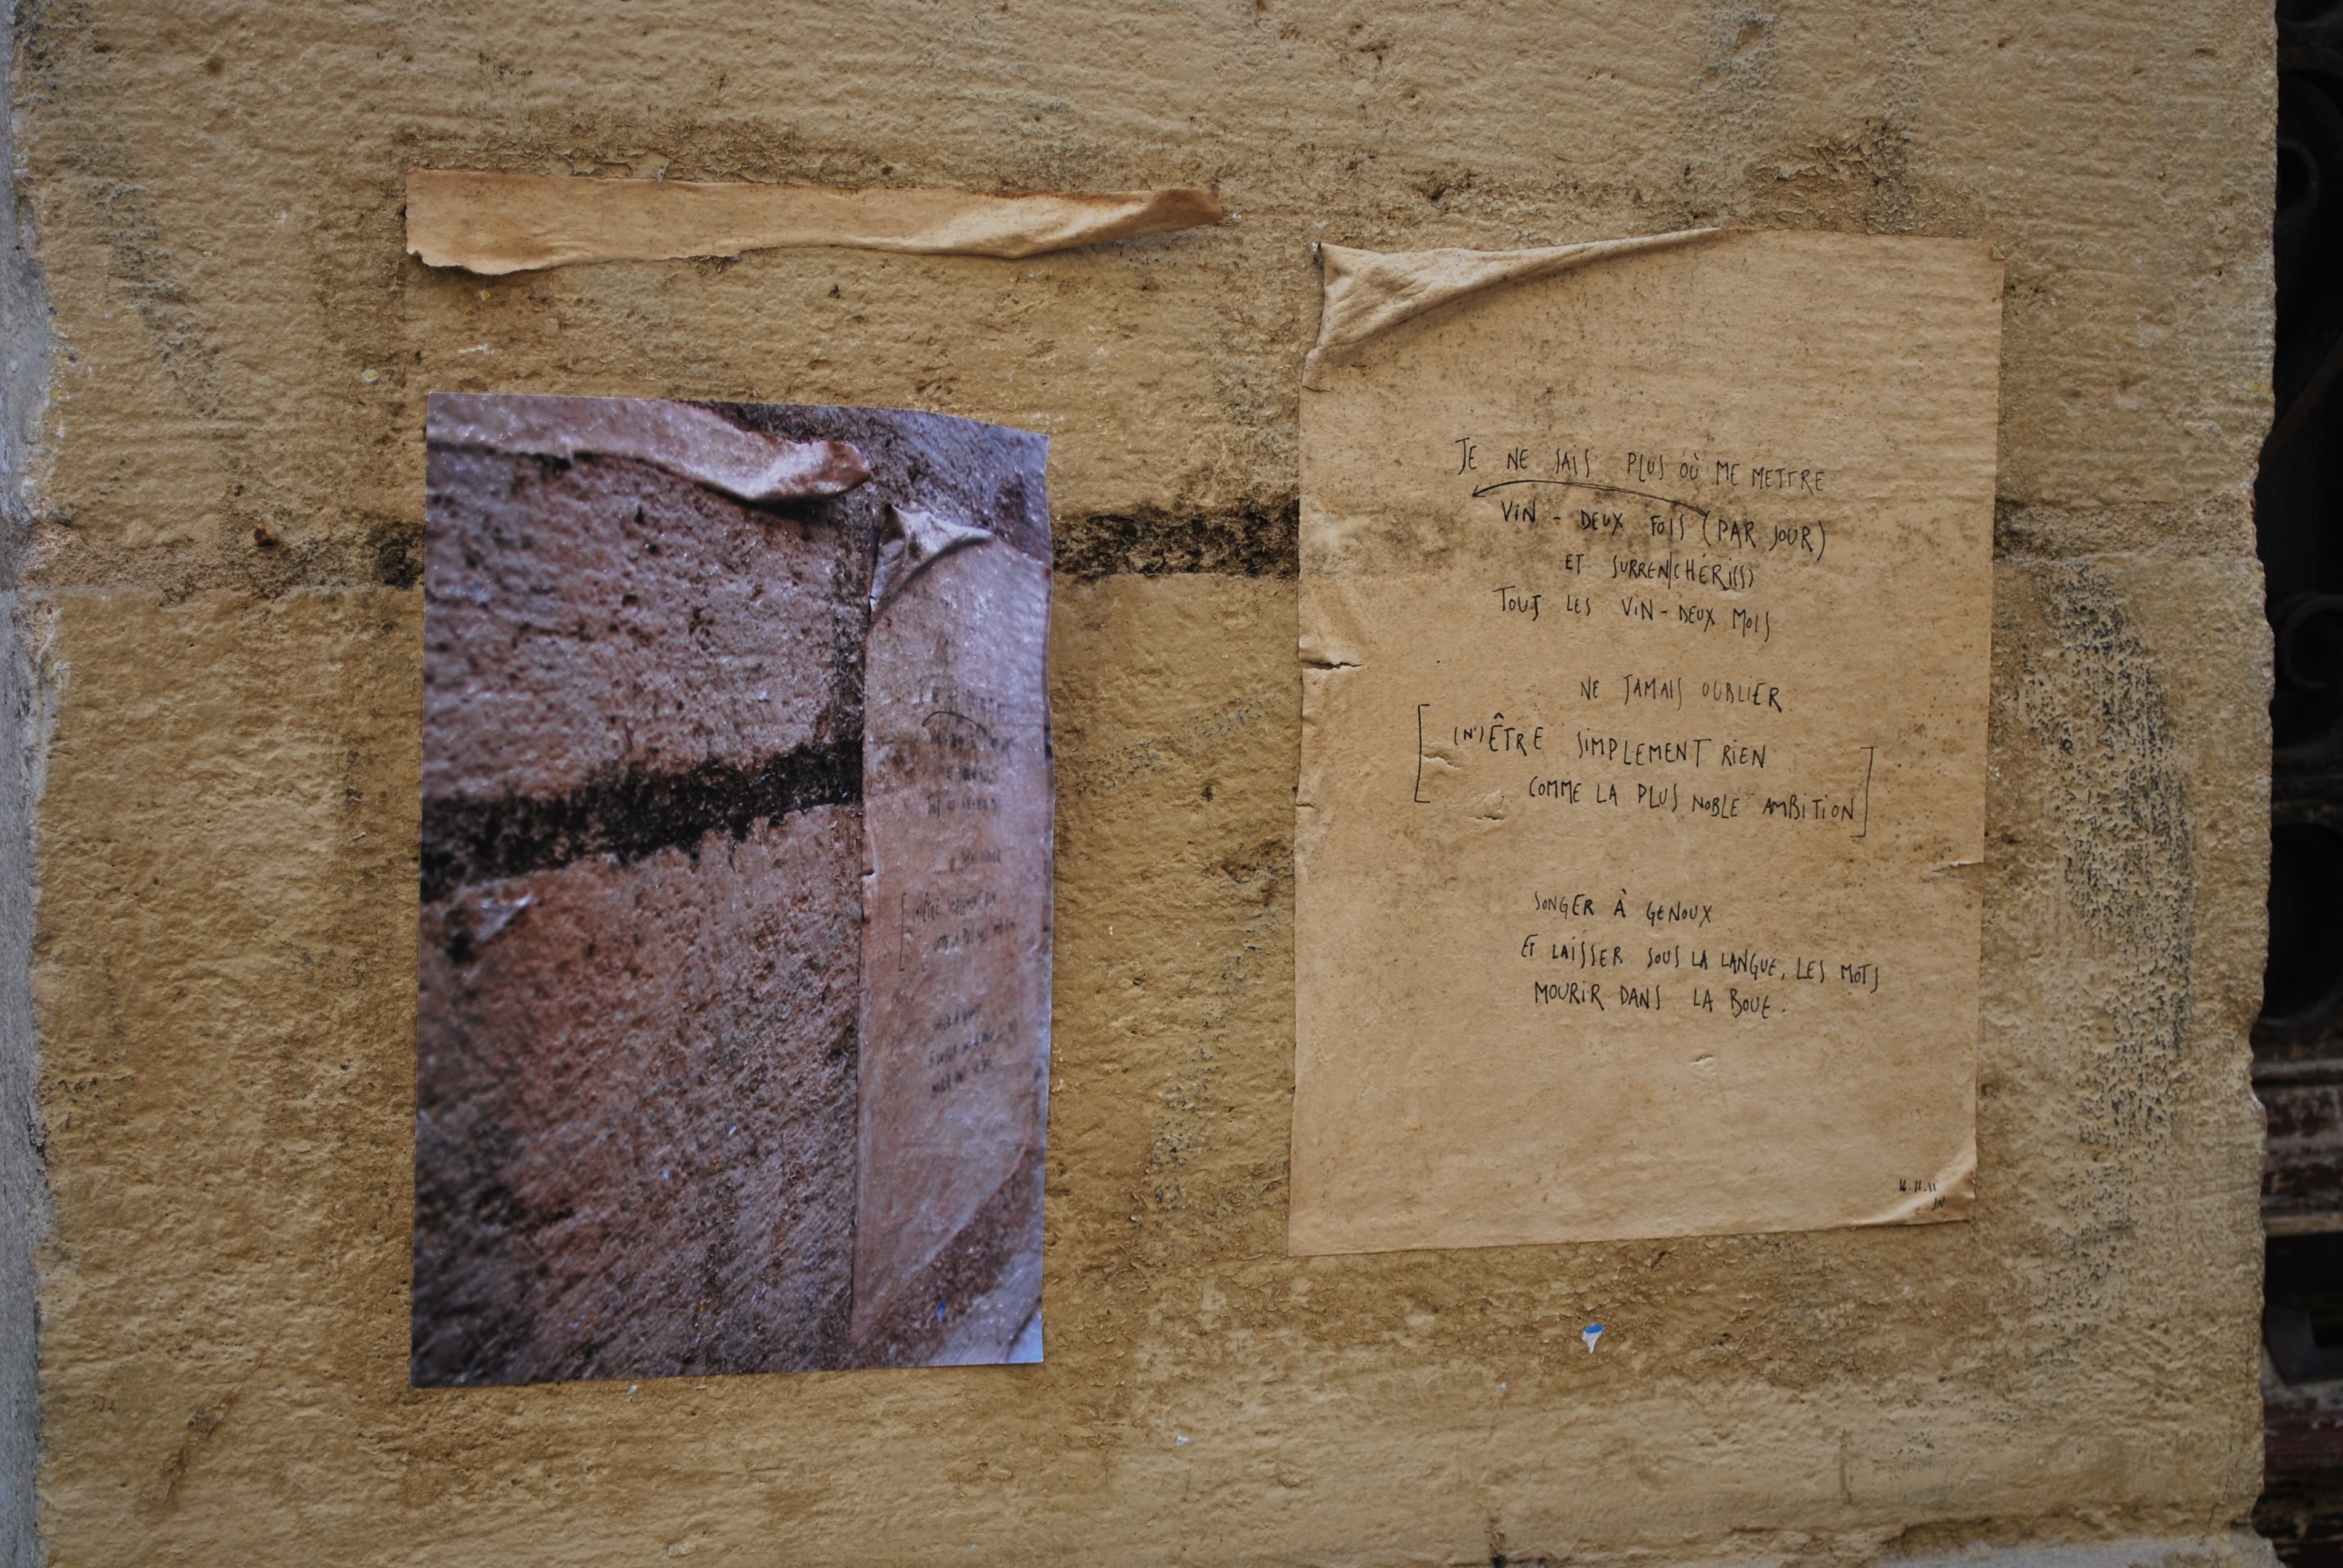 JE NE SAIS PLUS OÙ ME METTRE
VIN - DEUX FOIS (PAR JOUR)
ET SURREN/CHÉRI(S)
TOUS LES VIN - DEUX MOIS
NE JAMAIS OUBLIER
[(N')ÊTRE SIMPLEMENT RIEN
COMME LA PLUS NOBLE AMBITION]
SONGER À GENOUX
ET LAISSER SOUS LA LANGUE, LES MOTS
MOURIR DANS LA BOUE.